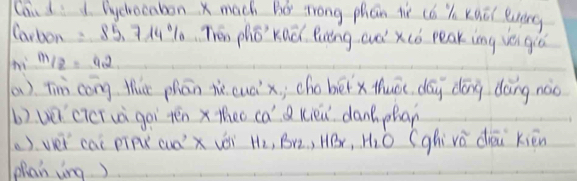 Câu 1: 1 hydrocacbon X mạch hở trong phân tử có % khối lượng
Carbon = 85,714%. Trên phổ khối lượng của X có peak ứng với giá
trị m/z = 42
a) Tìm công thức phân tử của X; cho biết X thuộc dãy đồng đẳng nào
b) viết CTCT và gọi tên X theo cả 2 kiểu danh pháp
c) viết các ptpư của X với H2, Br2, HBr, H2O (ghi rõ điều kiện
phản ứng)